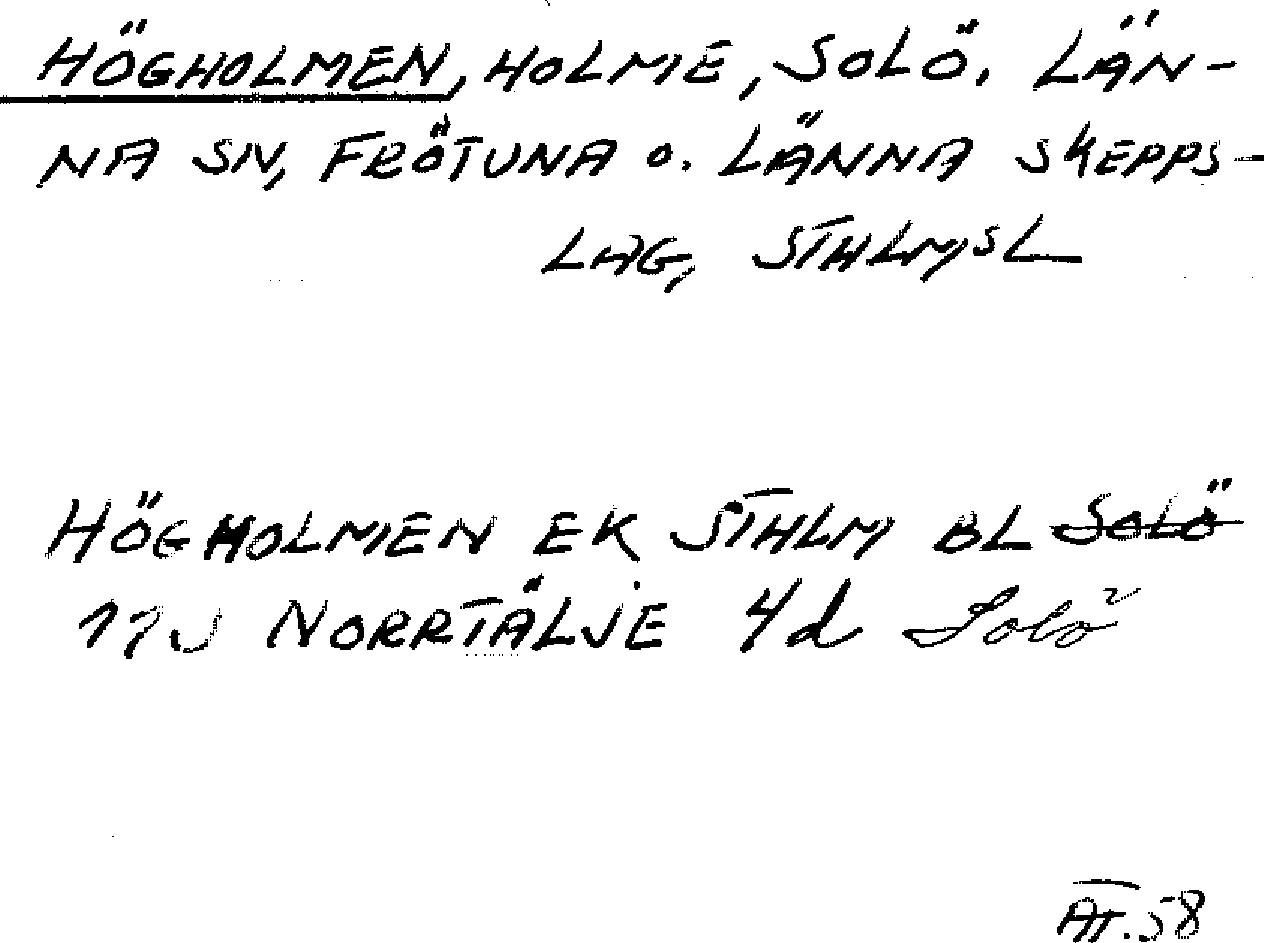 HÖGHOLMEN, HOLME, SOLÖ, LÄN-
NA SN, FRÖTUNA O. LÄNNA SKEPPS-
LAG, STHLMSL
HÖGHOLMEN EK STHLM BL SOLÖ
NORRTÄLJE 4d Solö
AT.58